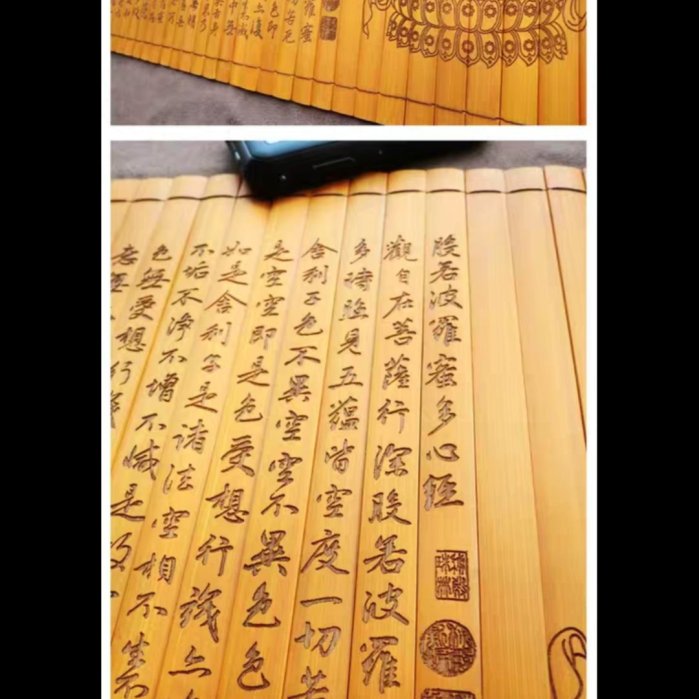 羅蜜
苦厄
色即
般若波羅蜜多心經
觀自在菩薩行深般若波羅
多時照見五蘊皆空度一切苦
舍利子色不異空空不異色色
是空空即是色受想行識亦
如是舍利子是諸法空相不生
不垢不淨不增不減是故
色無受想行
意